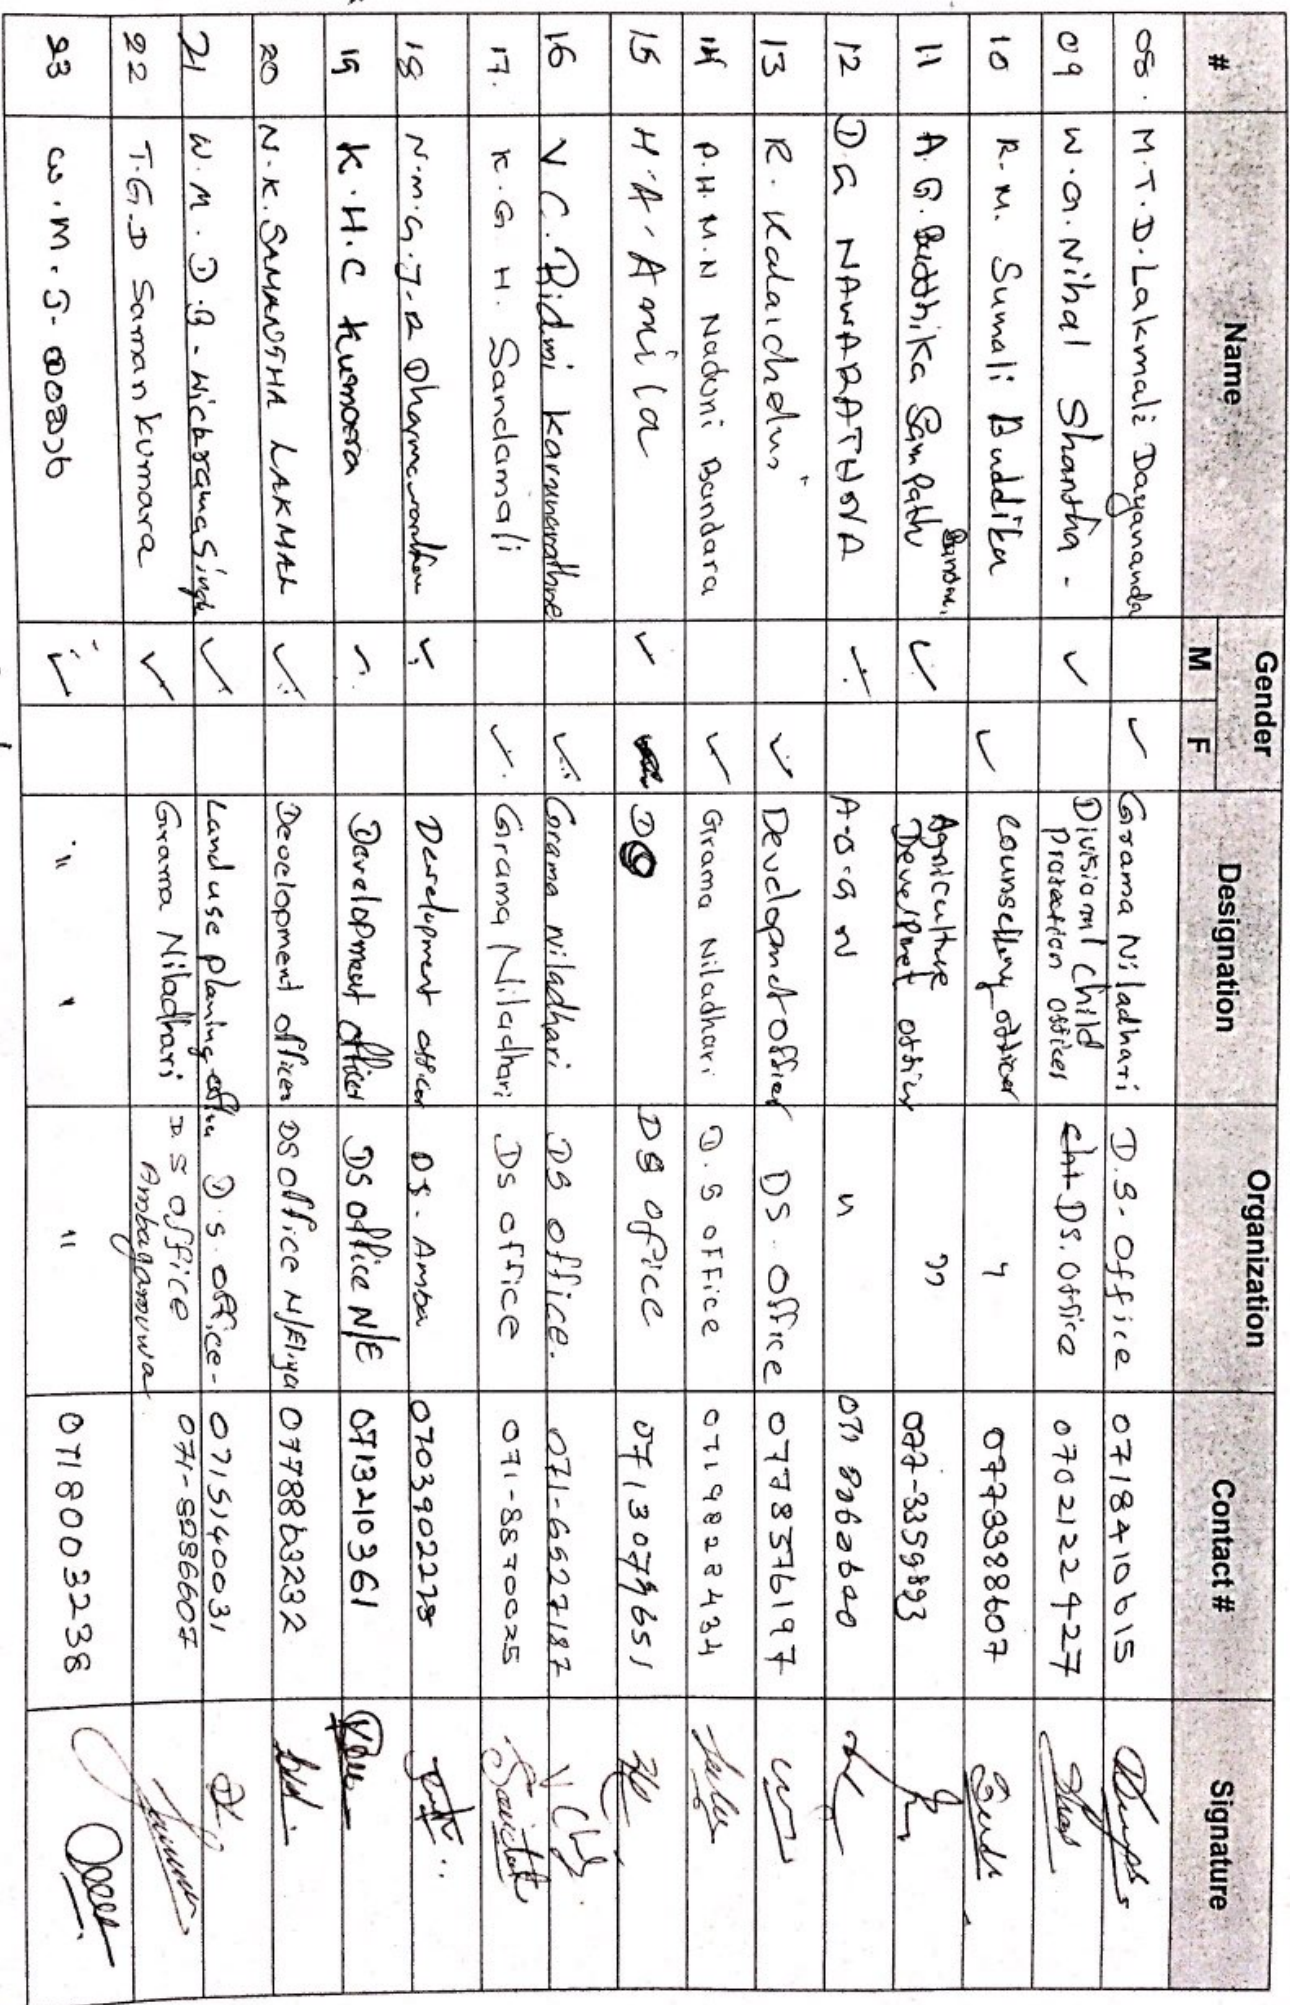 # Name Gender M F Designation Organization Contact # Signature
08. M.T.D. Lakmali Dayananda ✓ Grama Niladhari D.S. Office 0718410615
09 W.G. Nihal Shantha - ✓ Divisional Child Protection Officer DS. Office 0702122427
10 R.M. Sumali Buddika ✓ Counselling officer 〃 0773388607
11 A.G. Buddhika Sampath ✓ Agriculture Develpmet officer 〃 077-3359893
12 D.G NAWARATHNA ✓ A.O.G N 〃
13 R. Kalaichelvi ✓ Development officer DS. Office 0778376197
14 P.H.M.N Naduni Bandara ✓ Grama Niladhari D.S OFFice 0719828434
15 H.A. Amila ✓ DO DS office
16 V.C. Ridmi Karunarathne ✓ Grama Niladhari DS office. 071-6527187
17. K.G H. Sandamali ✓ Grama Niladhari Ds office 071-8870025
18 N.M.G.J.R Dharmawardhana ✓ Development officer DS. Amba 0703902278
19 K.H.C Kumara ✓ Development officer DS office N/E 0713210361
20 N.K. SAMANTHA LAKMAL ✓ Development officer DS Office N/Eliya 0778863232
21 W.M.D.B. Wickramasingh ✓ Land use planing D.S. office- 0715140031
22 T.G.D Saman kumara ✓ Grama Niladhari D.S office Ambagamuwa 071-8286607
23 W.M.J. ✓ 〃 〃 〃 0718003238